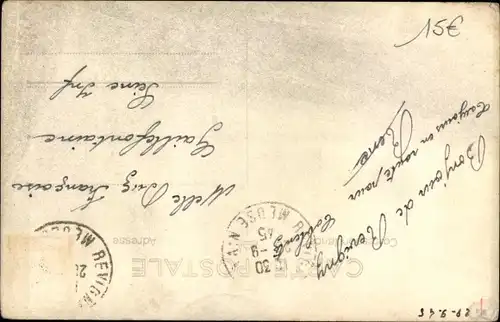 15€
Bonjour de Revigny
toujours en route pour
Coblentz
René
Melle Brig Françoise
Gaillefontaine
Seine Inf
CARTE POSTALE
Correspondance
Adresse
REVIGNY
MEUSE
30 -9
45
REVIGNY
MEUSE
29-9-45